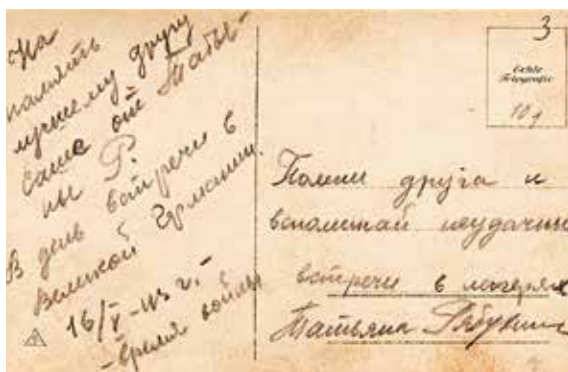 На
память
лучшему другу
Саше от Татья-
ны Р.
В день встречи в
Великой Германии.
16/V-43 г. -
- время войны
3
Echte
Fotografie
Помни друга и
вспоминай неудачные
встречи в лагерях
Татьяна